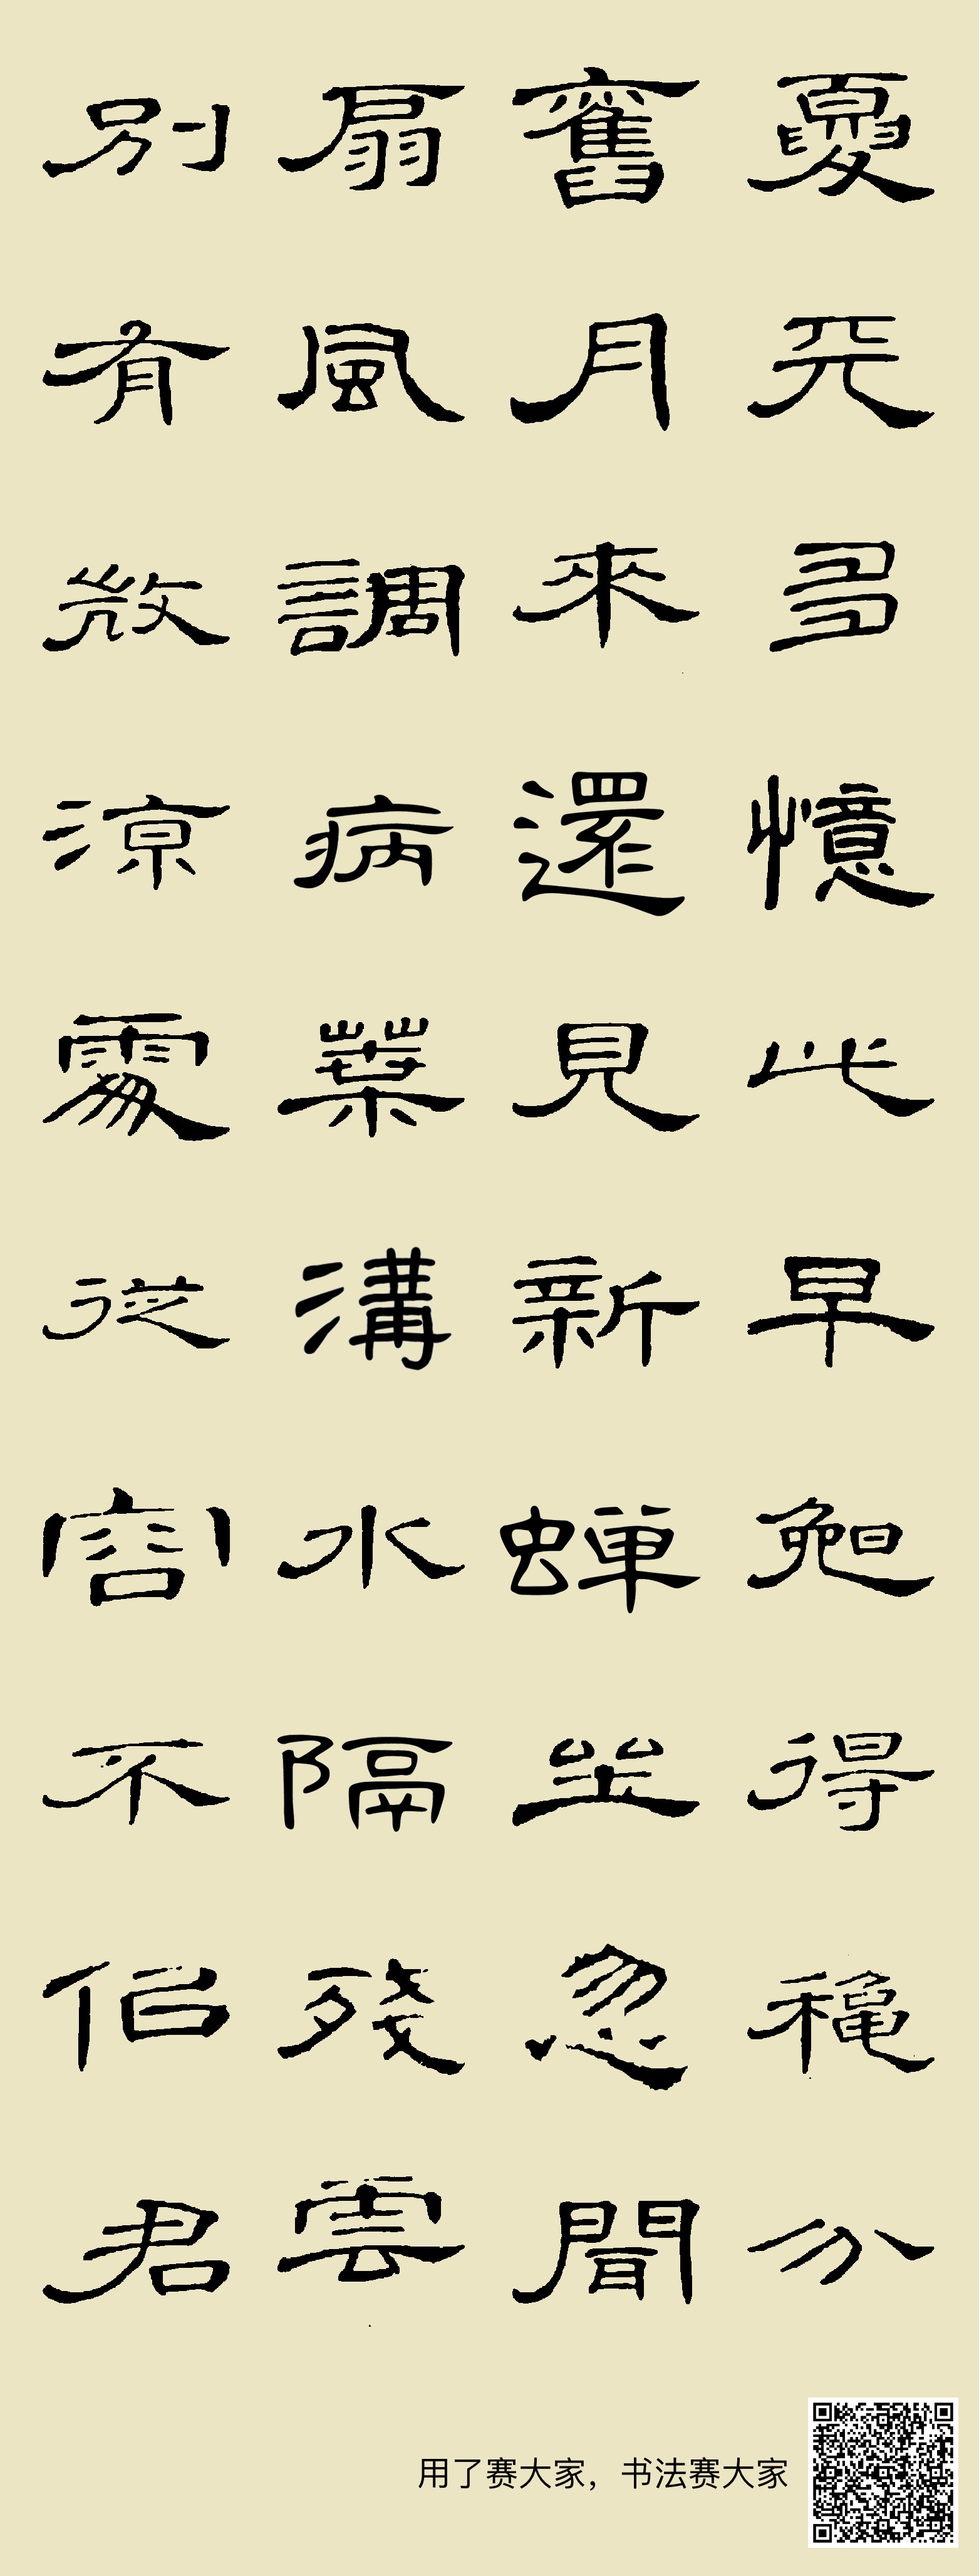 夏天多憶此早晚得穐分
舊月來還見新蟬坐忽聞
扇風調病葉溝水隔殘雲
別有微涼處從容不佀君
用了赛大家，书法赛大家